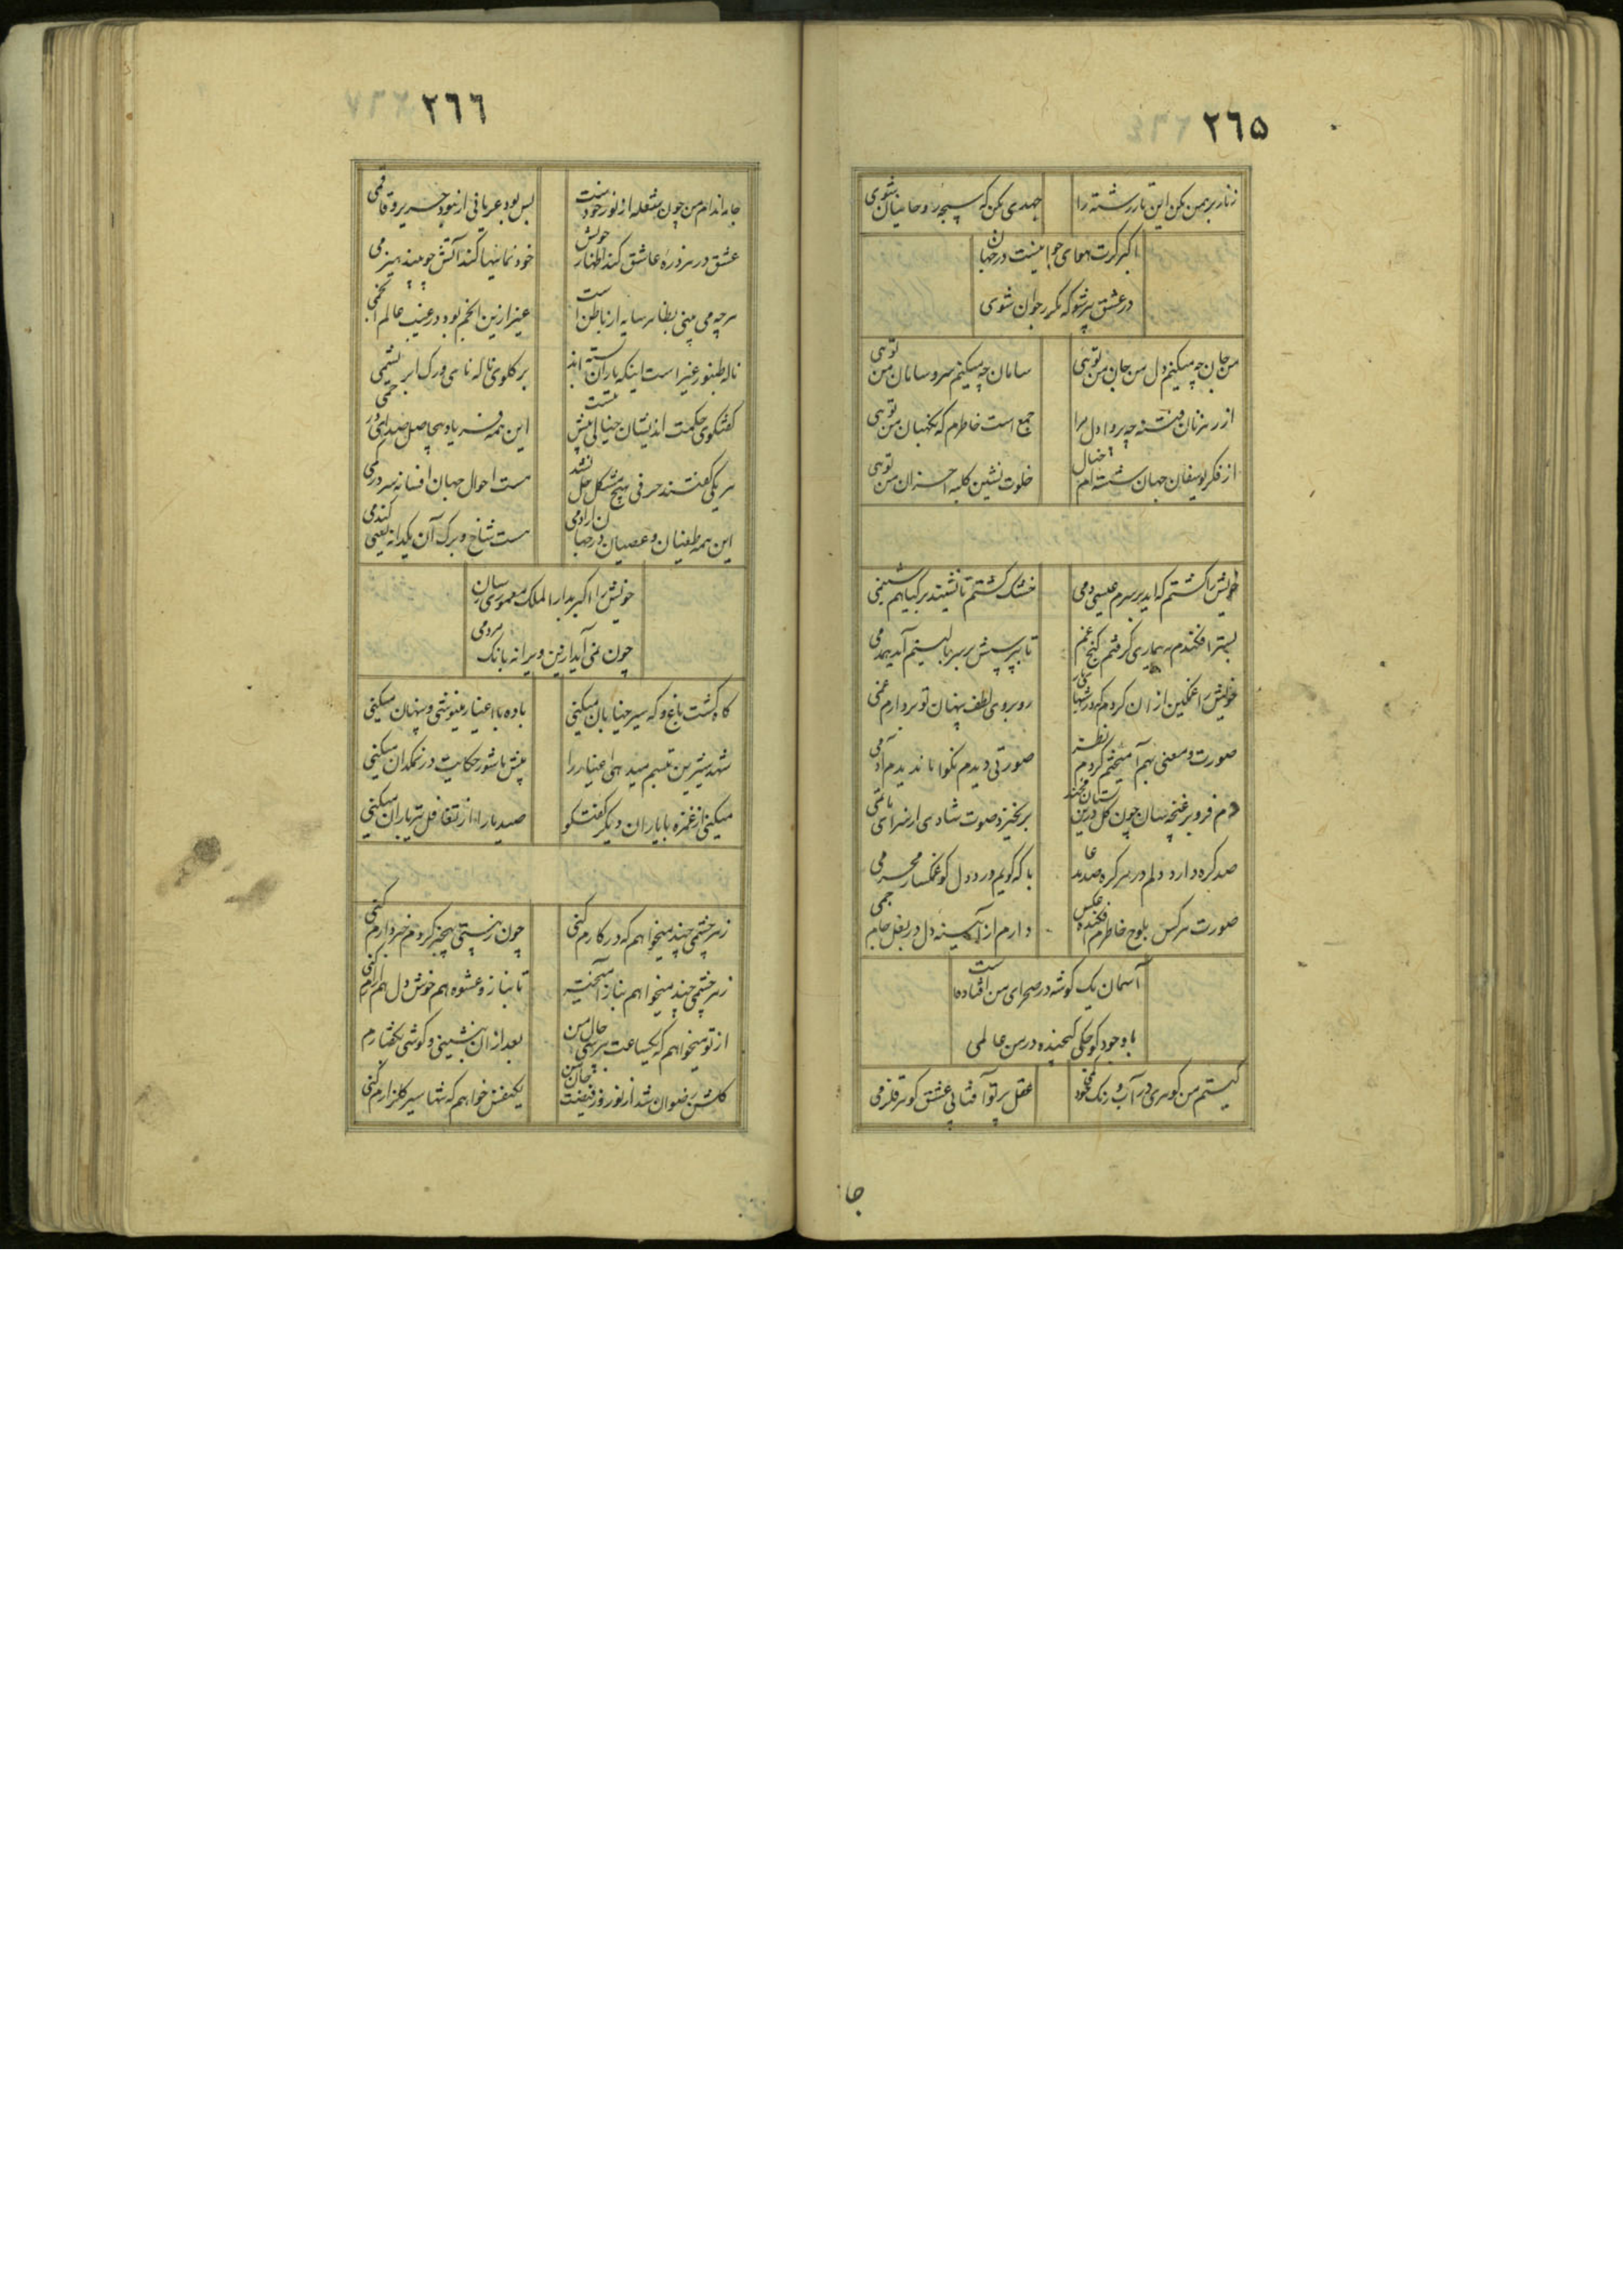 ٢٦٥
زنار برهمن مکن این تار رشته را
جهدی بکن که سبحهٔ روحانیان شوی
اکبر گرت هوای جوانیست در جهان
در عشق پیر شو که مکرر جوان شوی
من جان چه میکنم دل من جان من توئی
سامان چه میکنم سر و سامان من توئی
از رهزنان فتنه چه پروا دل مرا
جمع است خاطرم که نگهبان من توئی
از فکر یوسفان جهان شسته‌ام خیال
خلوت نشین کلبه احزان من توئی
خویش را کشتم که اید بر سرم عیسی دمی
خشک گشتم تا نشیند بر گیاهم شبنمی
بستر افکندم به بیماری گرفتم کنج غم
تا بپرسش بر سر بالینم آید همدمی
خویش را غمگین از ان کردم که در شبهای تار
روبروی لطف پنهان تو بردارم غمی
صورت و معنی بهم آمیختم کردم نظر
صورتی دیدم نکو اما ندیدم آدمی
دم فرو بر غنچه سان چون گل درین بستان مخند
بر نخیزد صوت شادی از سرای ماتمی
صد گره دارد دلم در هر گره صد مدعا
با که گویم درد دل کو غمگسار محرمی
صورت هر کس بلوح خاطرم افکنده عکس
دارم از آیینه دل در بغل جام جمی
آسمان یک گوشه در صحرای من افتاده است
با وجود کوچکی گنجیده در من عالمی
کیستم من گوهری در آب و رنگ خود گمی
عقل پرتو آفتابی عشق گوهر قلزمی
جا
٢٦٦
جامه اندام من چون شعله از نور خودست
بس بود عریانی از بود حریر و قاقمی
عشق در هر ذره عاشق کند اظهار خویش
خودنماییها کند آتش چو بیند هیزمی
هر چه می بینی بظاهر سایه از باطن است
غیر ازین انجم بود در غیب عالم انجمی
ناله طنبور غیر است اینکه یاران بسته اند
بر گلوی ناله نای و رگ ابریشمی
گفتگوی حکمت اندیشان خیالی بیش نیست
این همه فریاد بیحاصل صدای در خمی
هر یکی گفتند حرفی هیچ مشکل حل نشد
هست احوال جهان افسانه سر در گمی
این همه طغیان و عصیان در جهان ارادمی
هست شاخ و برگ آن یکدانه یعنی گندمی
خویش را اکبر بدار الملک معموری رسان
چون نمی آید ازین ویرانه بانگ مردمی
گاه گشت باغ و گه سیر خیابان میکنی
باده با اغیار مینوشی و پنهان میکنی
شهد شیرین تبسم میدهی اغیار را
نیش با شور حکایت در نمکدان میکنی
میکنی از غمزه با یاران دیگر گفتگو
صید یاران از تغافل تیرباران میکنی
زهر چشمی چند میخواهم که در کارم کنی
چون ز مستی بیخبر گردم خبردارم کنی
زهر چشمی چند میخواهم بناز آمیخته
تا بناز و عشوه هم خوش دل هم ازارم کنی
از تو میخواهم که یکساعت بپرسی حال من
بعد ازان بنشینی و گوشی بگفتارم کنی
گلشن رضوان شد از نوروز فیضت جان من
یکنفس خواهم که تنها سیر گلزارم کنی